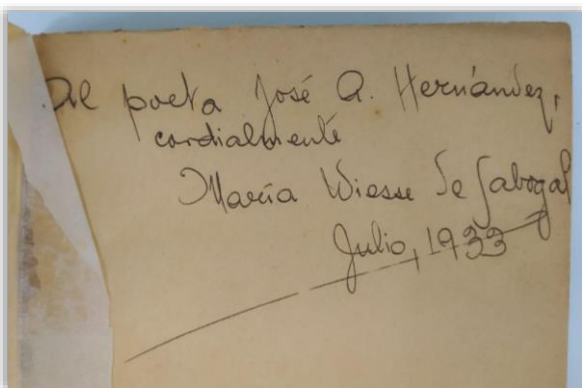 Al poeta José A. Hernández,
cordialmente
María Wiesse de Sabogal
Julio, 1933